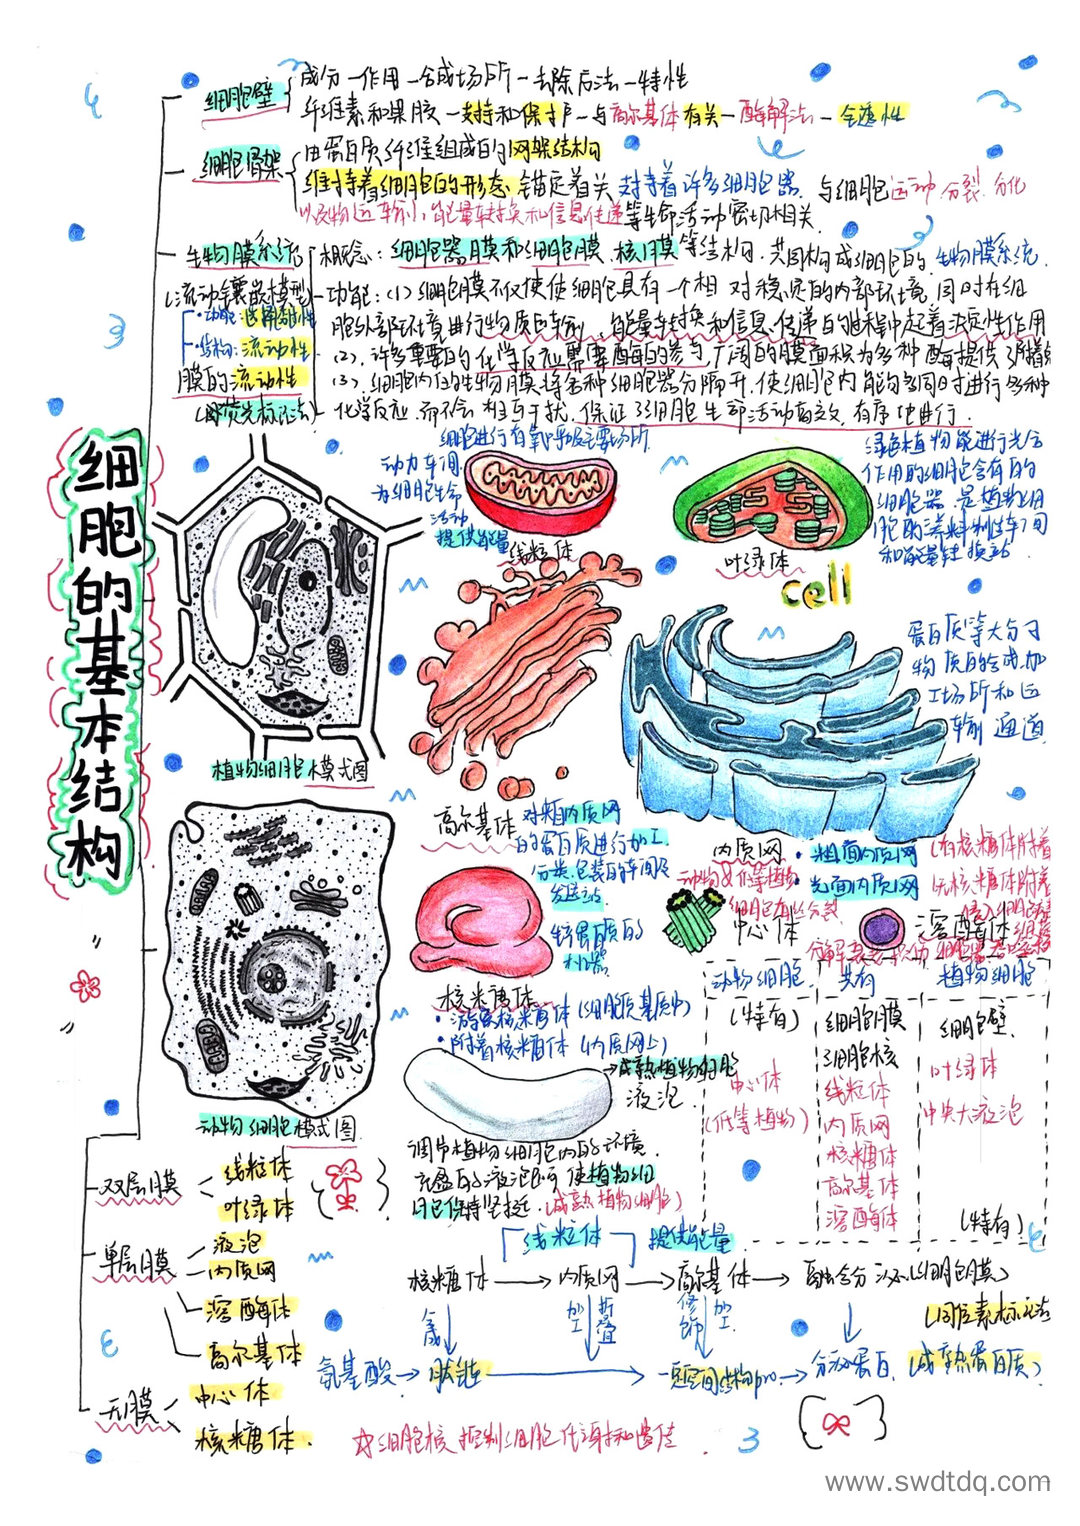 细胞的基本结构
细胞壁
成分—作用—合成场所—去除方法—特性
纤维素和果胶—支持和保护—与高尔基体有关—酶解法—全透性
细胞骨架
由蛋白质纤维组成的网架结构
维持着细胞的形态 锚定着 支持着许多细胞器 与细胞运动 分裂 分化
以及物质运输、能量转换和信息传递等生命活动密切相关.
生物膜系统
概念:细胞器膜和细胞膜、核膜等结构,共同构成细胞的 生物膜系统.
(流动镶嵌模型)
功能:(1)细胞膜不仅使细胞具有一个相对稳定的内部环境,同时在细
胞外部环境进行物质运输、能量转换和信息传递的过程中起着决定性作用
(2).许多重要的化学反应需要酶的参与,广阔的膜面积为多种酶提供了附着
(3).细胞内的生物膜将各种细胞器分隔开,使细胞内能够同时进行多种
化学反应,而不会相互干扰,保证了细胞生命活动高效、有序地进行.
·功能:选择透性
·结构:流动性
膜的流动性
(荧光标记法)
细胞进行有氧呼吸主要场所
动力车间
为细胞生命
活动
提供能量
线粒体
绿色植物能进行光合
作用的细胞含有的
细胞器,是植物细
胞的养料制造车间
和能量转换站
叶绿体
cell
蛋白质等大分子
物质的合成、加
工场所和运
输通道
植物细胞模式图
高尔基体
对来自内质网
的蛋白质进行加工
分类、包装的车间及
发送站
内质网
·粗面内质网(有核糖体附着
·光面内质网(无核糖体附着
动物&低等植物
细胞有丝分裂
中心体
溶酶体
生产蛋白质的
机器
核糖体
·游离核糖体(细胞质基质中)
·附着核糖体(内质网上)
动物细胞模式图
→成熟植物细胞
液泡
调节植物细胞内的环境
充盈的液泡可使植物细
胞保持坚挺(成熟植物细胞)
动物细胞 共有 植物细胞
(特有)
中心体
(低等植物)
细胞膜
细胞核
线粒体
内质网
核糖体
高尔基体
溶酶体
细胞壁
叶绿体
中央大液泡
(特有)
双层膜
线粒体
叶绿体
单层膜
液泡
内质网
溶酶体
高尔基体
无膜
中心体
核糖体.
线粒体 提供能量
核糖体→内质网→高尔基体→融合分泌(细胞膜)
合成
加工
折叠
修饰
加工
(同位素标记法
氨基酸→肽链→一定空间结构pro→分泌蛋白(成熟蛋白质)
☆细胞核控制细胞代谢和遗传
www.swdtdq.com